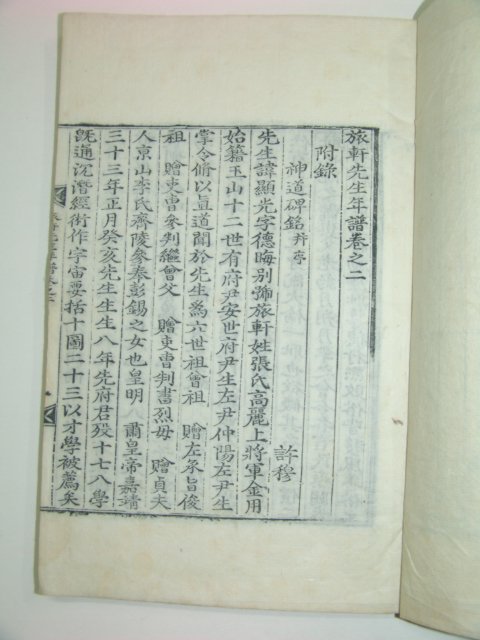 旅軒先生年譜卷之二
附錄
神道碑銘 幷序
許穆
先生諱顯光字德晦別號旅軒姓張氏高麗上將軍金用
始籍玉山十二世有府尹安世府尹生左尹仲陽左尹生
掌令脩以直道聞於先生爲六世祖曾祖 贈左承旨俊
祖 贈吏曹參判繼曾父 贈吏曹判書烈母 贈貞夫
人京山李氏齊陵參奉彭錫之女也皇明 肅皇帝嘉靖
三十三年正月癸亥先生生生八年先府君歿十七八學
旣通沈潛經術作宇宙要括十圖二十三以才學被薦矣